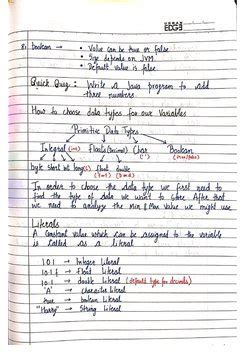 8. boolean → • Value can be true or false
• Size depends on JVM
• Default value is false.
Quick Quiz : Write a Java program to add
three numbers.
How to choose data types for our Variables
Primitive Data Types
Integral (int) Floats (Decimal) Char (' ') Boolean (true/false)
byte short int long float double
In order to choose the data type we first need to
find the type of data we want to store. After that
we need to analyze the Min & Max Value we might use.
Literals
A constant value which can be assigned to the variable
is called as a literal
101 → Integer literal
10.1f → Float literal
10.1 → double literal (default type for decimals)
'A' → character literal
true → boolean literal
"Harry" → String literal